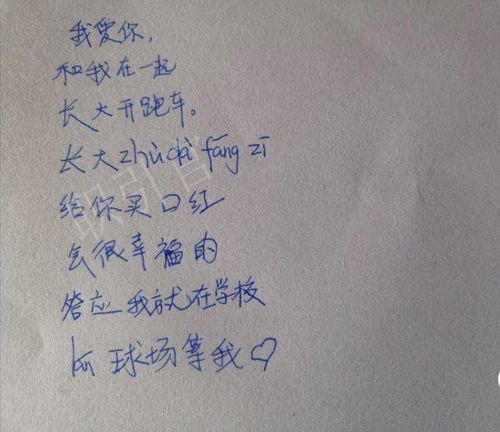 我爱你，
和我在一起
长大开跑车。
长大zhù dà fáng zī
给你买口红
会很幸福的
答应我就在学校
lán 球场等我♡